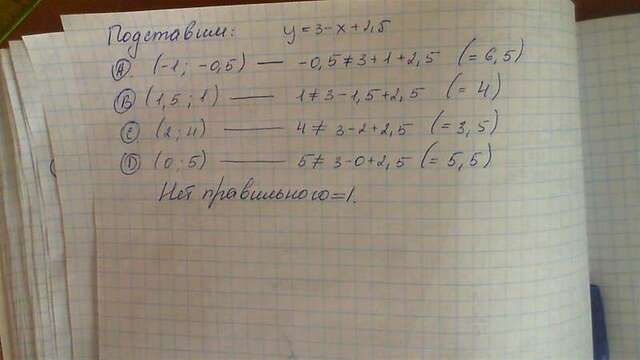 Подставим: y=3-x+2,5
(A) (-1; -0,5) — -0,5≠3+1+2,5 (=6,5)
(B) (1,5; 1) — 1≠3-1,5+2,5 (=4)
(C) (2; 4) — 4≠3-2+2,5 (=3,5)
(D) (0; 5) — 5≠3-0+2,5 (=5,5)
Нет правильного=1.